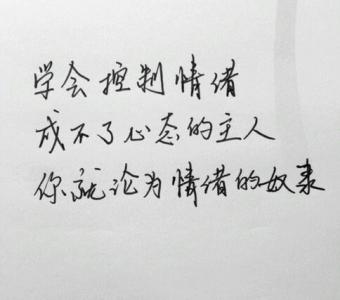 学会控制情绪
成不了心态的主人
你就论为情绪的奴隶